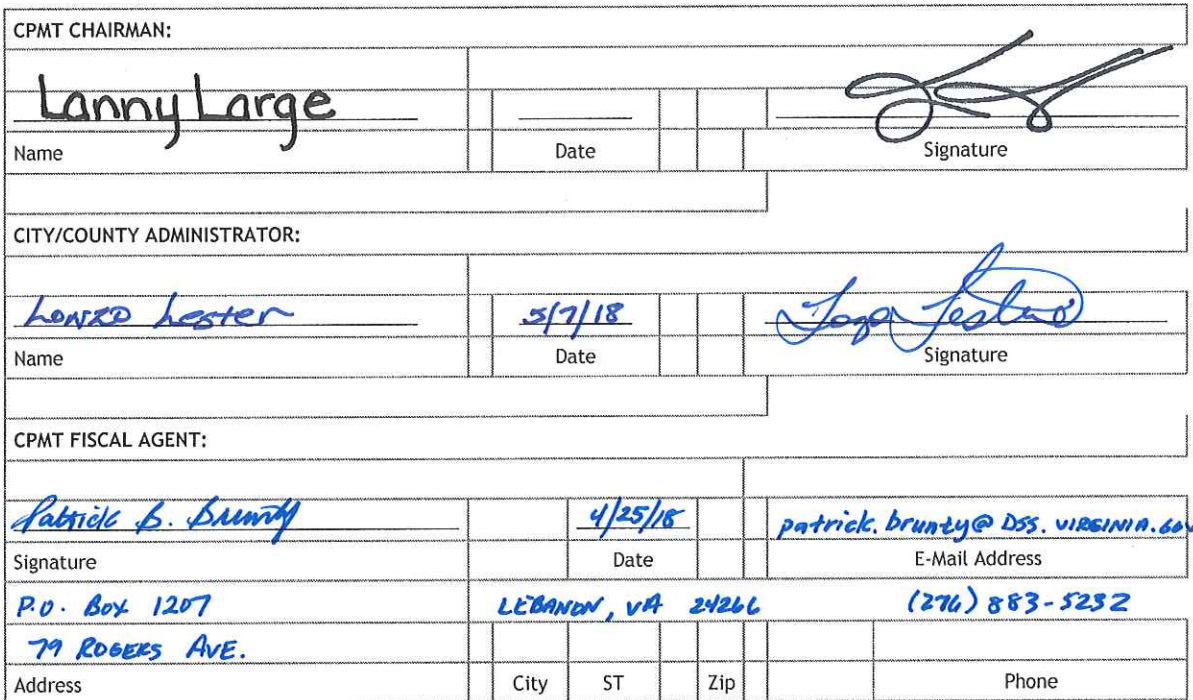 CPMT CHAIRMAN:
Lanny Large
Name Date Signature
CITY/COUNTY ADMINISTRATOR:
Lonzo Lester 5/7/18
Name Date Signature
CPMT FISCAL AGENT:
Patrick B. Brunty 4/25/18 patrick.brunty@DSS.VIRGINIA.GOV
Signature Date E-Mail Address
P.O. Box 1207 LEBANON, VA 24266 (276) 883-5232
79 ROGERS AVE.
Address City ST Zip Phone